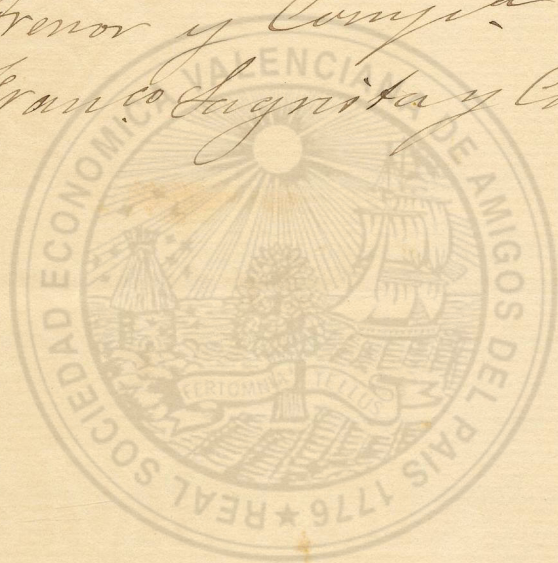 Trenor y Compía
Franco Sagrista y C
REAL SOCIEDAD ECONOMICA VALENCIANA DE AMIGOS DEL PAIS 1776 ★
FERT OMNIA TELLUS